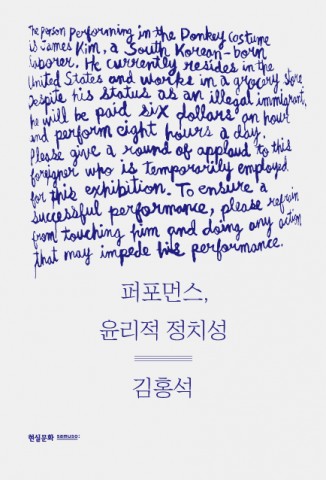 The person performing in the Donkey costume
is James Kim, a South Korean-born
laborer. He currently resides in the
United States and works in a grocery store
Despite his status as an illegal immigrant,
he will be paid six dollars an hour
and perform eight hours a day.
Please give a round of applaud to this
foreigner who is temporarily employed
for this exhibition. To ensure a
successful performance, please refrain
from touching him and doing any action
that may impede his performance.
퍼포먼스,
윤리적 정치성
김홍석
현실문화 semuso: